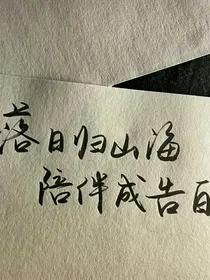 落日归山海
陪伴成告白